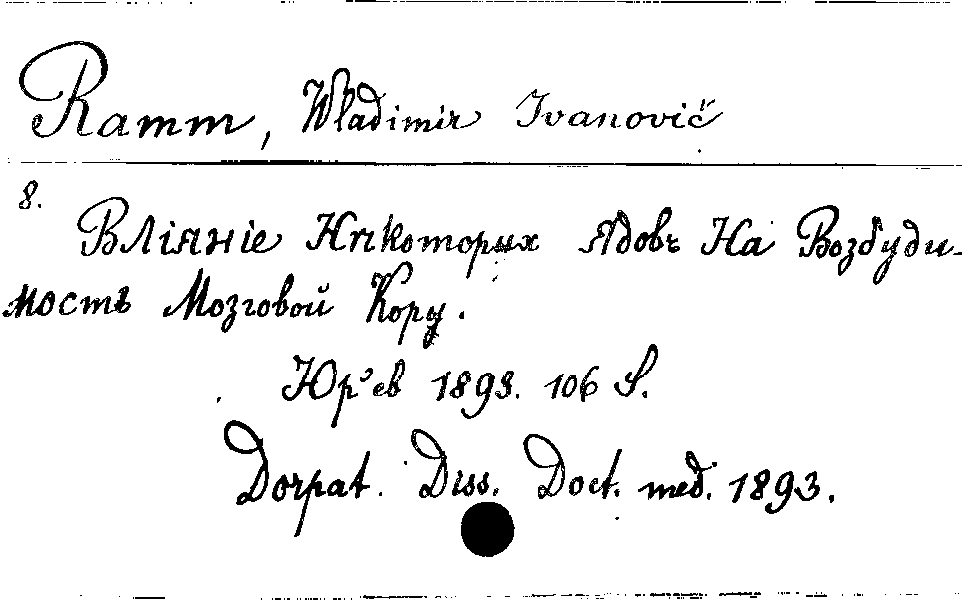 Ramm, Wladimir Ivanovič
8.
Вліяніе Нѣкоторых Ядовъ На Возбуди-
мость Мозговой Кору.
Юр'ев 1893. 106 S.
Dorpat. Diss. Doct. med. 1893.